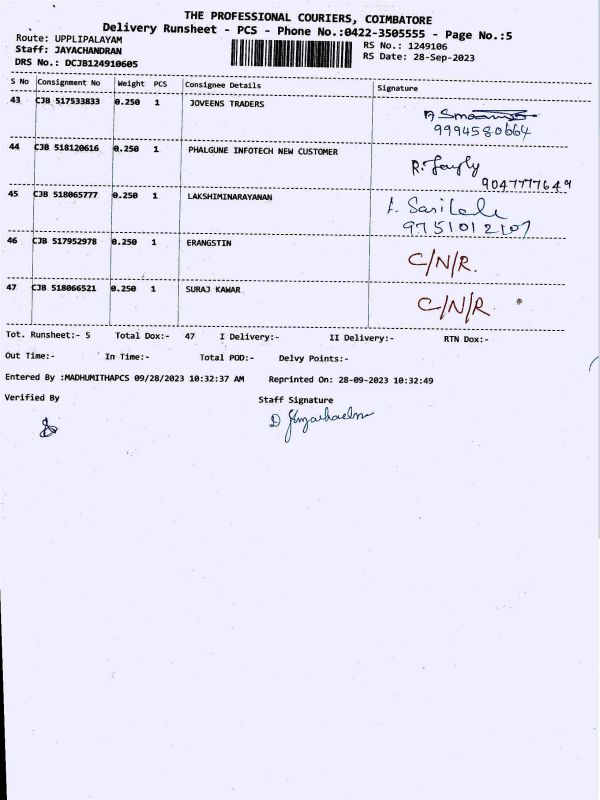 THE PROFESSIONAL COURIERS, COIMBATORE
Delivery Runsheet - PCS - Phone No.:0422-3505555 - Page No.:5
Route: UPPLIPALAYAM
RS No.: 1249106
Staff: JAYACHANDRAN
RS Date: 28-Sep-2023
DRS No.: DCJB124910605
S No Consignment No Weight PCS Consignee Details Signature
43 CJB 517533833 0.250 1 JOVEENS TRADERS
9994580664
44 CJB 518120616 0.250 1 PHALGUNE INFOTECH NEW CUSTOMER
R.
9047777649
45 CJB 518065777 0.250 1 LAKSHIMINARAYANAN
9751012107
46 CJB 517952978 0.250 1 ERANGSTIN
C/N/R.
47 CJB 518066521 0.250 1 SURAJ KAWAR
C/N/R
Tot. Runsheet:- 5 Total Dox:- 47 I Delivery:- II Delivery:- RTN Dox:-
Out Time:- In Time:- Total POD:- Delvy Points:-
Entered By :MADHUMITHAPCS 09/28/2023 10:32:37 AM Reprinted On: 28-09-2023 10:32:49
Verified By Staff Signature